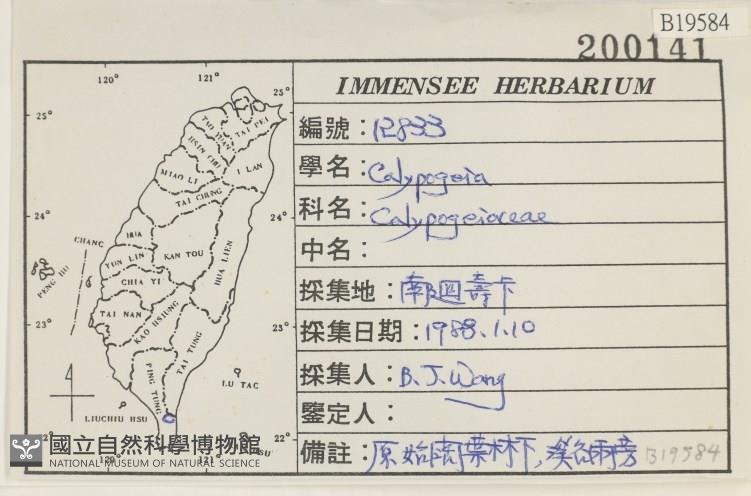 B19584
200141
IMMENSEE HERBARIUM
編號：12833
學名：Calypogeia
科名：Calypogeiaceae
中名：
採集地：南迴壽卡
採集日期：1988.1.10
採集人：B. J. Wang
鑒定人：
備註：原始闊葉林下，溪谷兩旁 B19584
120°
121°
25°
25°
24°
24°
23°
23°
22°
22°
120°
121°
TAO YUAN
TAI PEI
HSIN CHU
I LAN
MIAO LI
TAI CHUNG
HUA
CHANG
NAN TOU
HUA LIEN
YUN LIN
PENG HU
CHIA YI
TAI NAN
KAO HSIUNG
TAI TUNG
PING TUNG
LU TAO
LIUCHIU HSU
國立自然科學博物館
NATIONAL MUSEUM OF NATURAL SCIENCE